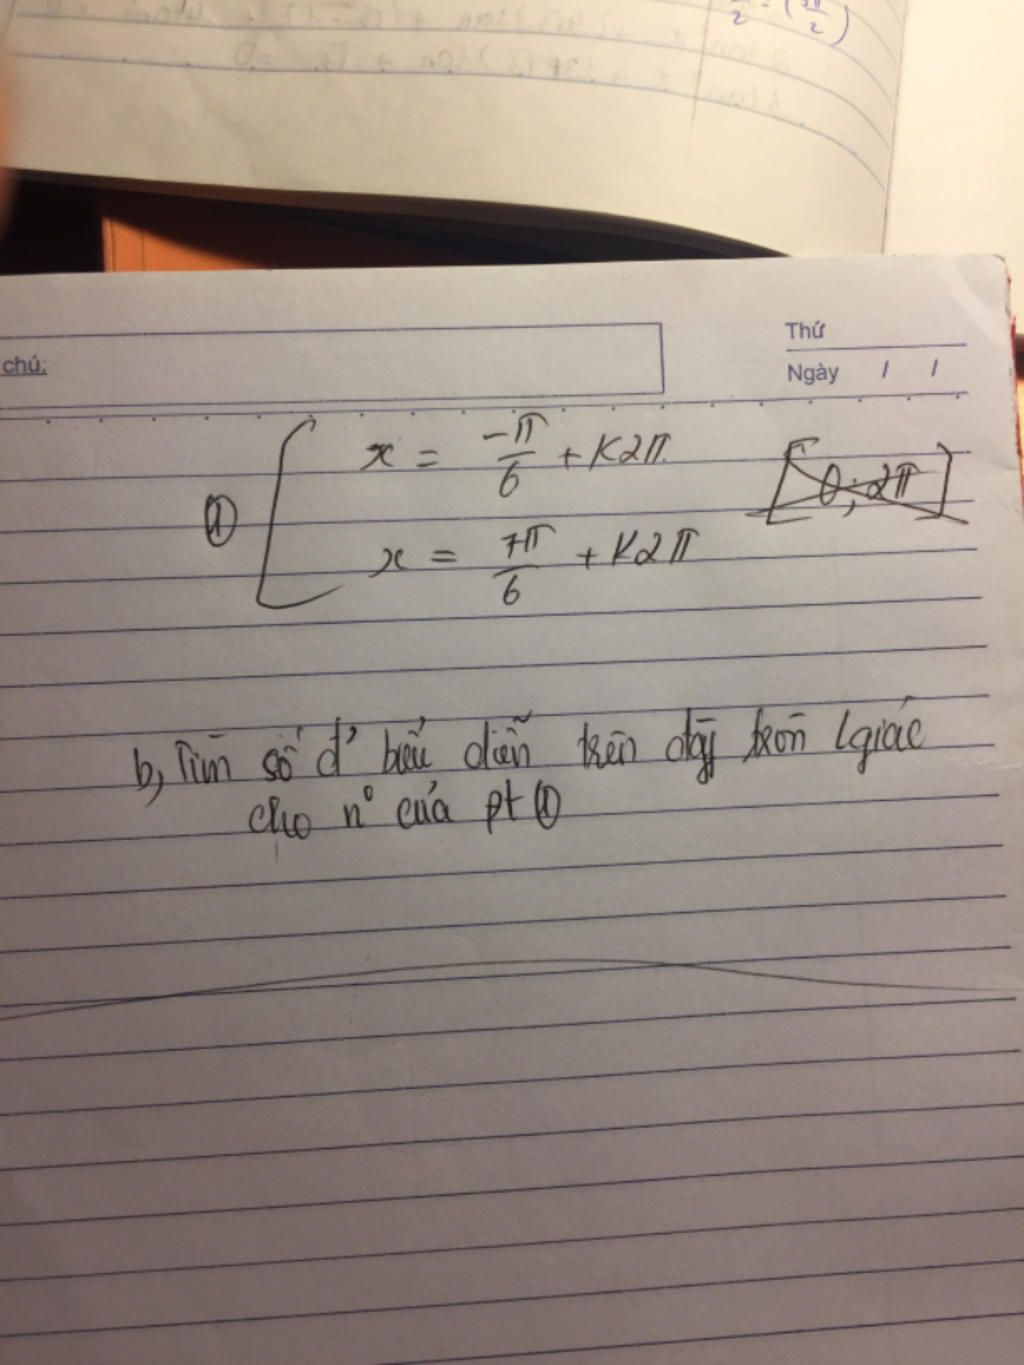 π/2 = (3π/2)
chú:
Thứ
Ngày / /
① [ x = -π/6 + K2π
[0; 2π]
x = 7π/6 + K2π
b, Tìm số đ' biểu diễn trên đg tròn lgiác
cho n° của pt ①